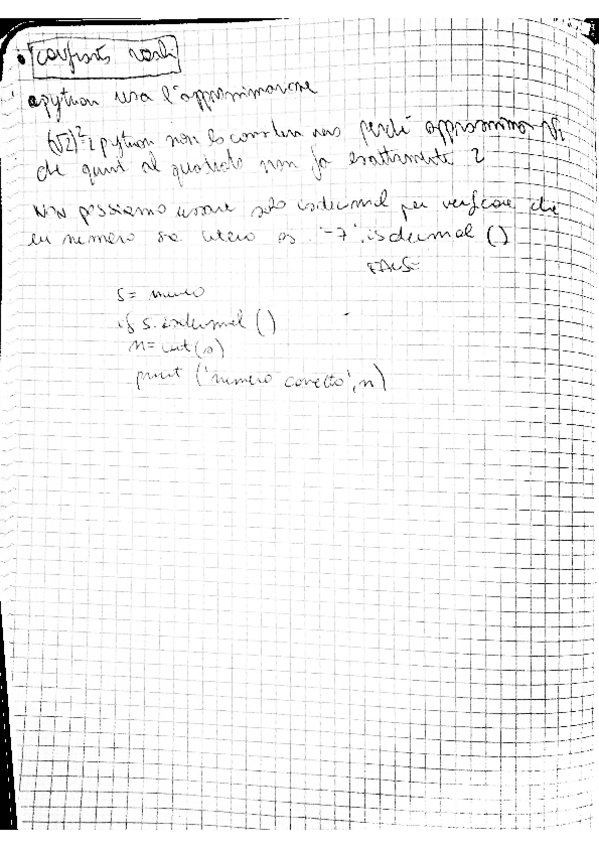 confronto reali
python usa l'approssimazione
(√2)²=2 python non lo considera vero perché approssima √2
che quindi al quadrato non fa esattamente 2
Non possiamo usare solo isdecimal per verificare che
un numero sia intero es. '-7'.isdecimal ()
FALSE
s= numero
if s.isdecimal ()
n=int(s)
print ('numero corretto', n)